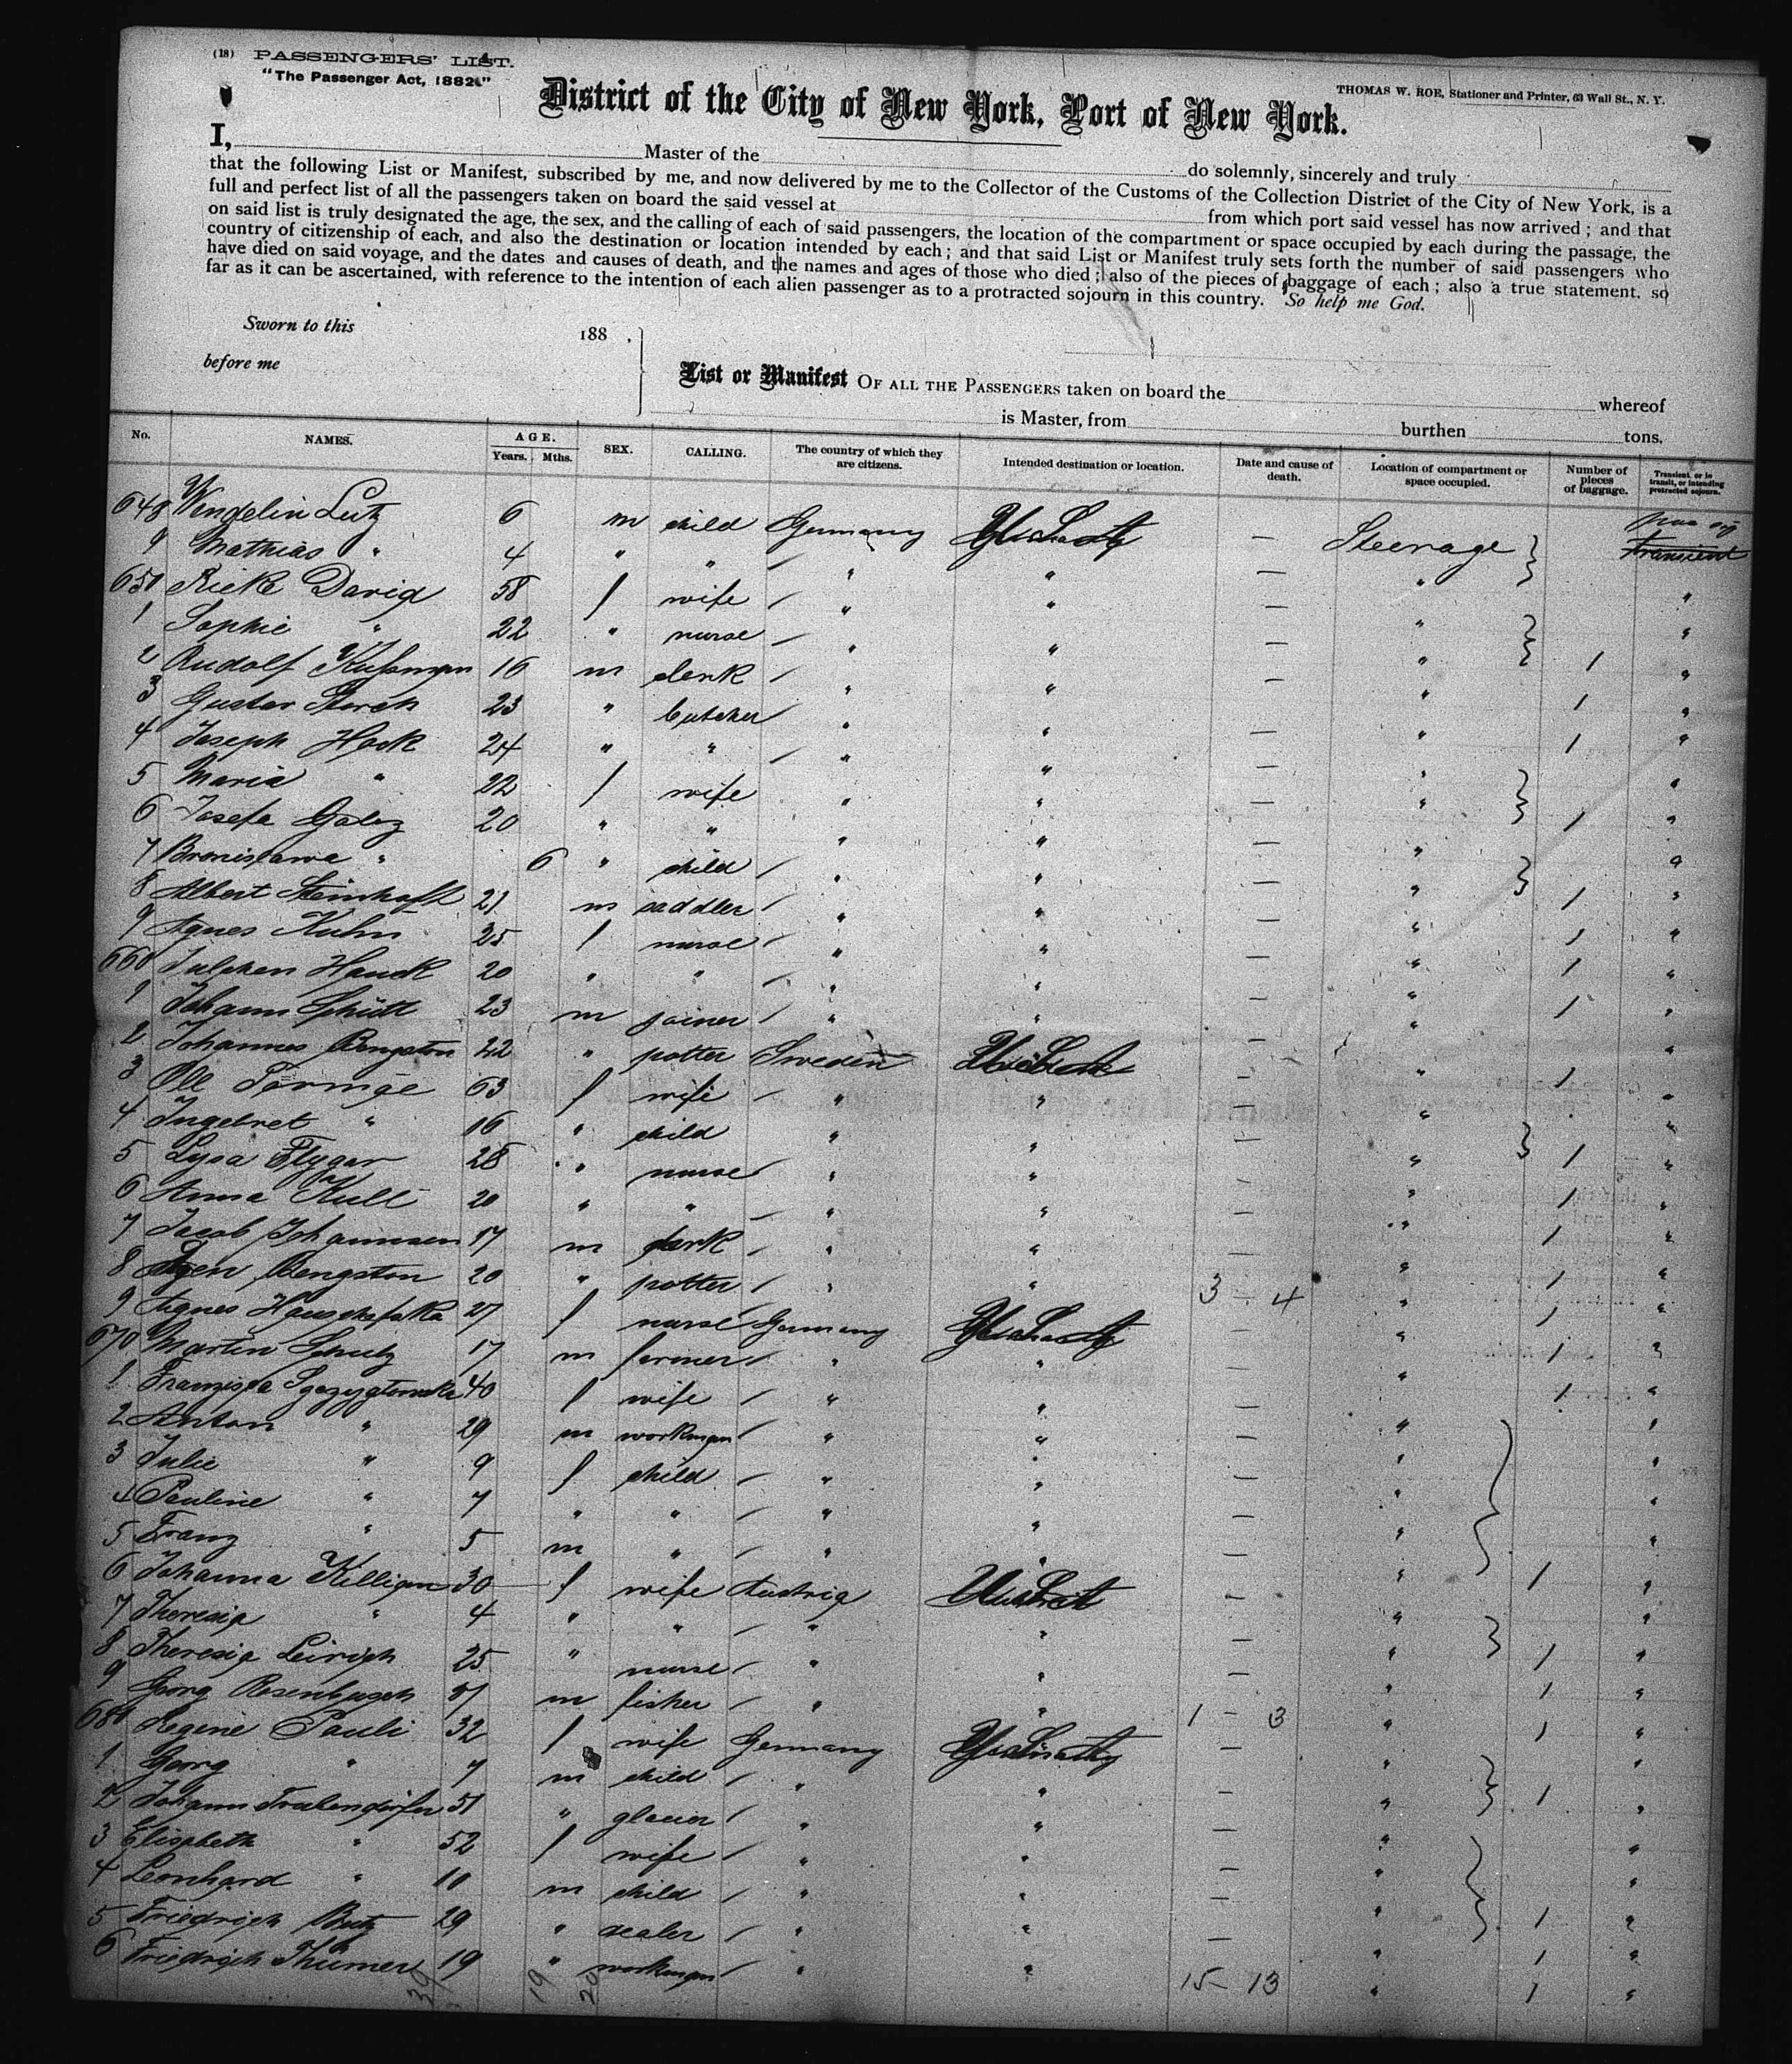 (18) PASSENGERS' LIST.
"The Passenger Act, 1882."
THOMAS W. ROE, Stationer and Printer, 63 Wall St., N. Y.
District of the City of New York, Port of New York.
I, Master of the do solemnly, sincerely and truly
that the following List or Manifest, subscribed by me, and now delivered by me to the Collector of the Customs of the Collection District of the City of New York, is a
full and perfect list of all the passengers taken on board the said vessel at from which port said vessel has now arrived; and that
on said list is truly designated the age, the sex, and the calling of each of said passengers, the location of the compartment or space occupied by each during the passage, the
country of citizenship of each, and also the destination or location intended by each; and that said List or Manifest truly sets forth the number of said passengers who
have died on said voyage, and the dates and causes of death, and the names and ages of those who died; also of the pieces of baggage of each; also a true statement, so
far as it can be ascertained, with reference to the intention of each alien passenger as to a protracted sojourn in this country. So help me God.
Sworn to this 188 .
before me
List or Manifest OF ALL THE PASSENGERS taken on board the whereof
is Master, from burthen tons.
No. NAMES. AGE. Years. Mths. SEX. CALLING. The country of which they are citizens. Intended destination or location. Date and cause of death. Location of compartment or space occupied. Number of pieces of baggage. Transient, or in transit, or intending protracted sojourn.
648 Wendelin Lutz 6 m child Germany — Steerage transient
9 Mathias " 4 " " " " — " "
650 Rick David 58 f wife " " — " "
1 Sophie " 22 " nurse " " — " 1 "
2 Rudolf 16 m clerk " " — " 1 "
3 Gustav Storch 23 " butcher " " — " 1 "
4 Joseph Hock 24 " " " " — " "
5 Maria " 22 f wife " " — " 1 "
6 Josefa Golez 20 " " " " — " "
7 Bronislawa " 6 " child " " — " 1 "
8 Albert Steinhoff 21 m saddler " " — " 1 "
9 Agnes Kuhn 25 f nurse " " — " 1 "
660 Julchen Hauck 20 " " " " — " 1 "
1 Johann Schütt 23 m joiner " " — " "
2 Johannes Bengston 22 " potter Sweden — " 1 "
3 Oll Tormge 63 f wife " " — " "
4 Ingebret " 16 " child " " — " 1 "
5 Lysa Flygar 28 " nurse " " — " 1 "
6 Anna Kull 20 " " " " — " 1 "
7 Jacob Johannsen 17 m clerk " " — " 1 "
8 Bengston 20 " potter " " 3 - 4 " 1 "
9 Agnes 27 f nurse Germany — " 1 "
670 Martin Schulz 17 m farmer " " — " 1 "
1 Franziska 40 f wife " " — " "
2 Anton " 29 m workman " " — " "
3 Julie " 9 f child " " — " "
4 Pauline " 7 " " " " — " "
5 Franz " 5 m " " " — " 1 "
6 Johanna Killigan 30 f wife Austria — " "
7 Theresia " 4 " " " " — " 1 "
8 Theresia 25 " nurse " " — " 1 "
9 Georg Rosenbusch m fisher " " 1 - 3 " 1 "
680 Regine Pauli 32 f wife Germany — " "
1 Georg " 7 m child " " — " 1 "
2 Johann 51 " " " — " "
3 Elisabeth " 52 f wife " " — " "
4 Leonhard " 10 m child " " — " 1 "
5 Friedrich Butz 29 " dealer " " — " 1 "
6 Friedrich Thümer 19 " workman " " 15 - 13 " 1 "
39 19 20